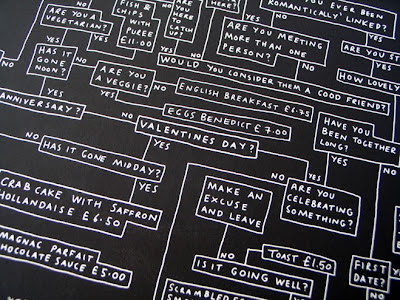 ARE YOU A
VEGETARIAN?
FISH &
CHIPS
WITH
PUREE
£11.00
ARE
YOU
HERE TO
CATCH
UP?
HERE?
YOU EVER BEEN
ROMANTICALLY LINKED?
YES
NO
YES
NO
YES
NO
ARE YOU MEETING
MORE THAN ONE
PERSON?
YES
NO
ARE YOU ST
HAS IT
GONE
NOON?
YES
NO
WOULD YOU CONSIDER THEM A GOOD FRIEND?
YES
HOW LOVELY
ARE YOU
A
VEGGIE?
NO
ENGLISH BREAKFAST £6.75
YES
ANNIVERSARY?
YES
EGGS BENEDICT £7.00
NO
VALENTINES DAY?
HAVE YOU
BEEN TOGETHER
LONG?
NO
HAS IT GONE MIDDAY?
YES
NO
YES
NO
CRAB CAKE WITH SAFFRON
HOLLANDAISE £6.50
YES
MAKE AN
EXCUSE
AND LEAVE
NO
ARE YOU
CELEBRATING
SOMETHING?
MAGNAC PARFAIT
CHOCOLATE SAUCE £5.00
TOAST £1.50
FIRST
DATE?
IS IT GOING WELL?
NO
YES
SCRAMBLED